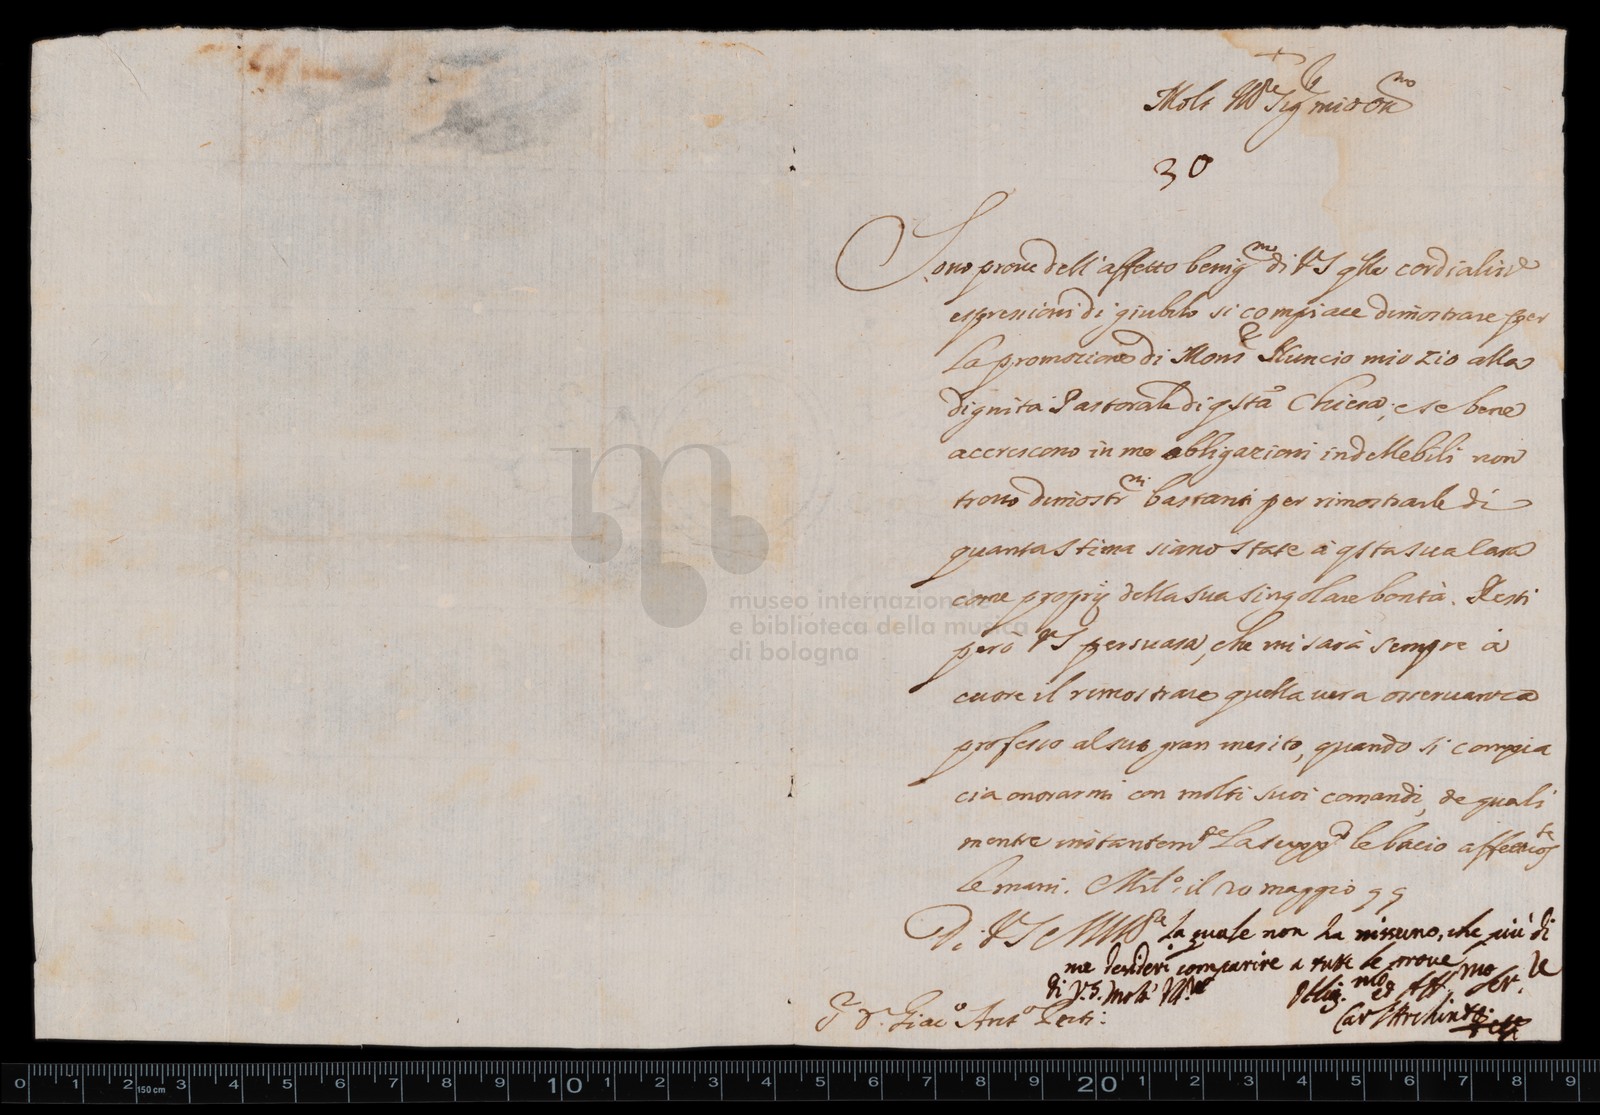 Molt Ill.re Sig.r mio oss.mo
30
Sono prove dell'affetto benig.mo di VS q.lle cordialiss.e
espressioni di giubilo si compiace dimostrare per
la promozione di Mons.r Nuncio mio zio alla
dignità Pastorale di q.sta Chiesa, e se bene
accrescono in me obbligazioni indellebili non
trovo dimostr.ni bastanti per rimostrarle di
quanta stima siano state à q.sta sua Casa
come proprij della sua singolare bontà. Resti
però VS persuasa, che mi sarà sempre à
cuore il rimostrare quella vera osservanza
professo al suo gran merito, quando si compia
cia onorarmi con molti suoi comandi, de quali
mentre instantem.te la supp.co le bacio affettuos.te
le mani. Mil.o il 20 maggio 99
Di VS Molt Ill.re la quale non ha nissuno, che più di
me desideri comparire a tutte le prove
di V.S. Molt' Ill.re
Obblig.mo ed Aff.mo Ser.re
Car.o Archinto
S.r D. Giac.o Ant.o Perti:
museo internazionale
e biblioteca della musica
di bologna
0 1 2 3 4 5 6 7 8 9 10 1 2 3 4 5 6 7 8 9 20 1 2 3 4 5 6 7 8 9
150 cm